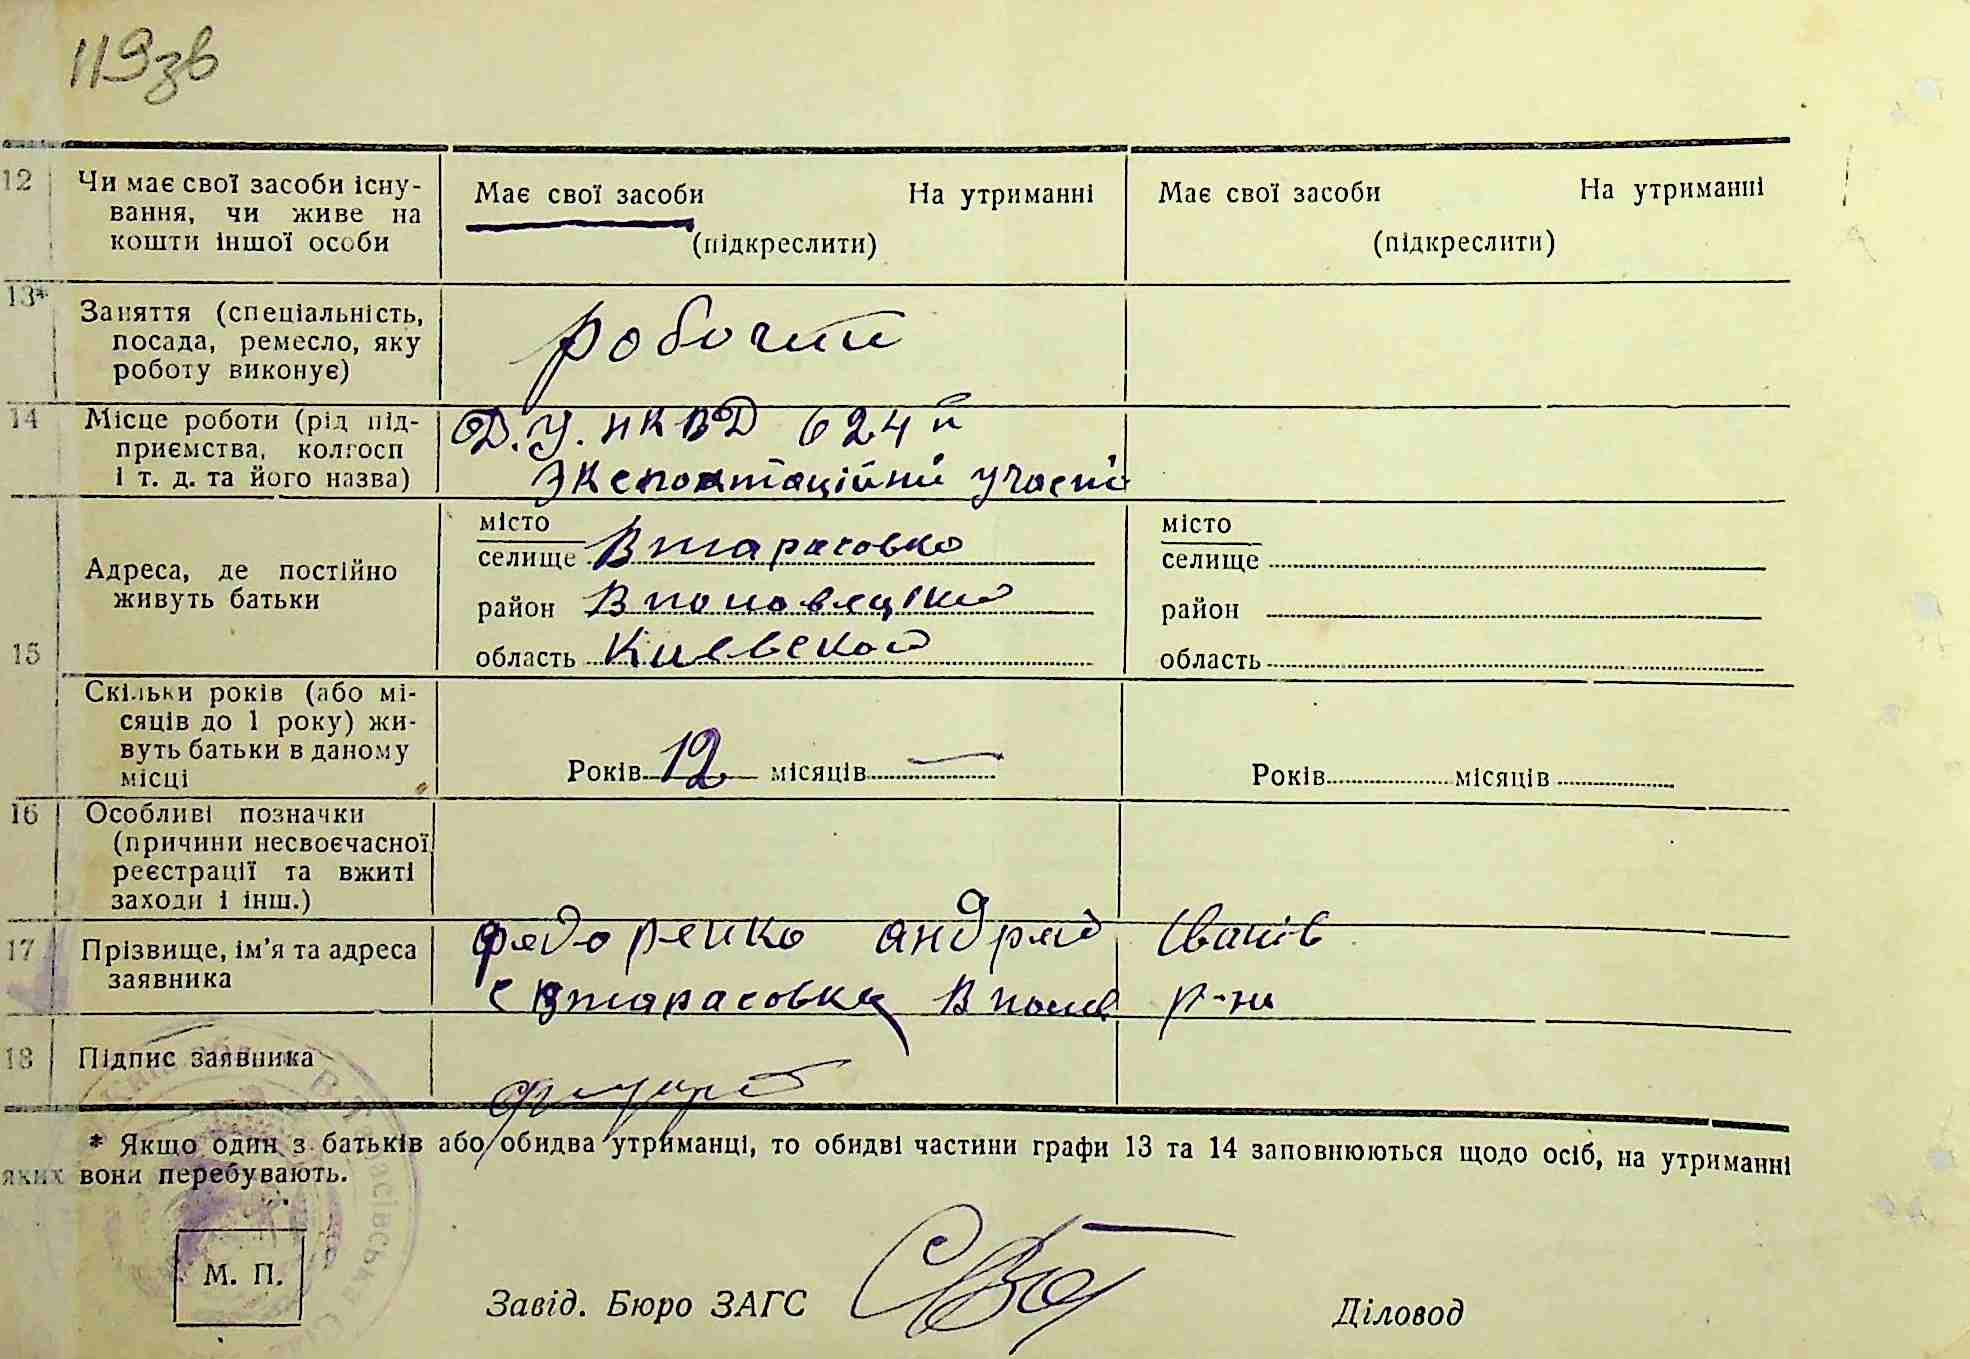 119зв
12 Чи має свої засоби існу-
вання, чи живе на
кошти іншої особи
Має свої засоби На утриманні
(підкреслити)
Має свої засоби На утриманні
(підкреслити)
13* Заняття (спеціальність,
посада, ремесло, яку
роботу виконує)
робочий
14 Місце роботи (рід під-
приємства, колгосп
і т. д. та його назва)
Д.У. НКВД 624й
15 Адреса, де постійно
живуть батьки
місто
селище Втарасовка
район
область Киевской
місто
селище
район
область
Скільки років (або мі-
сяців до 1 року) жи-
вуть батьки в даному
місці
Років 12 місяців —
Років місяців
16 Особливі позначки
(причини несвоєчасної
реєстрації та вжиті
заходи і інш.)
17 Прізвище, ім'я та адреса
заявника
Федоренко Андрей Іванів
с Втарасовка Впол р-на
18 Підпис заявника
* Якщо один з батьків або обидва утриманці, то обидві частини графи 13 та 14 заповнюються щодо осіб, на утриманні
яких вони перебувають.
М. П.
Завід. Бюро ЗАГС
Діловод